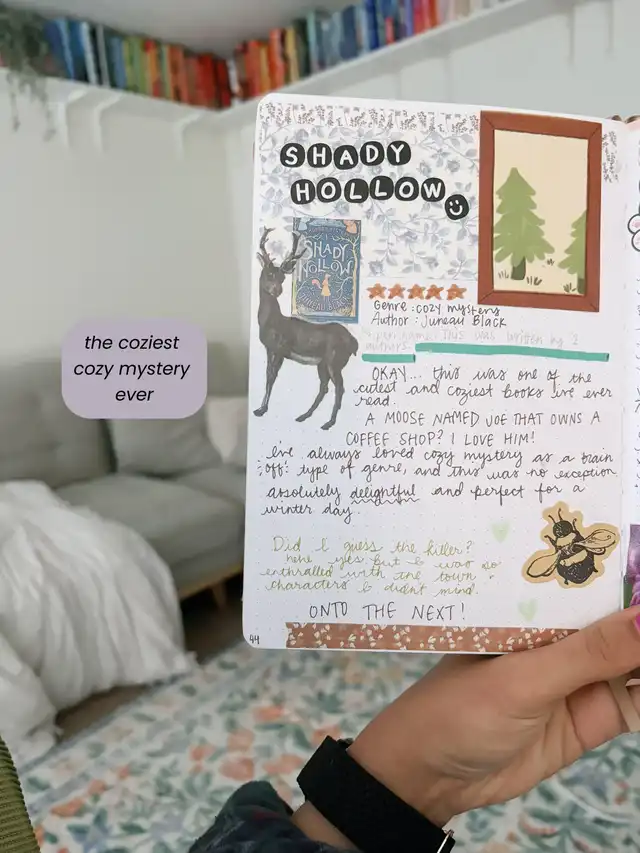 SHADY
HOLLOW
SHADY
HOLLOW
JUNEAU BLACK
Genre : cozy mystery
Author : Juneau Black
pen name. This was written by 2
authors
the coziest
cozy mystery
ever
OKAY... this was one of the
cutest and coziest books i've ever
read.
A MOOSE NAMED JOE THAT OWNS A
COFFEE SHOP? I LOVE HIM!
I've always loved cozy mystery as a brain
"off" type of genre, and this was no exception
absolutely delightful and perfect for a
winter day.
Did I guess the killer?
hehe yes but I was so
enthralled with the town +
characters I didn't mind.
ONTO THE NEXT!
44